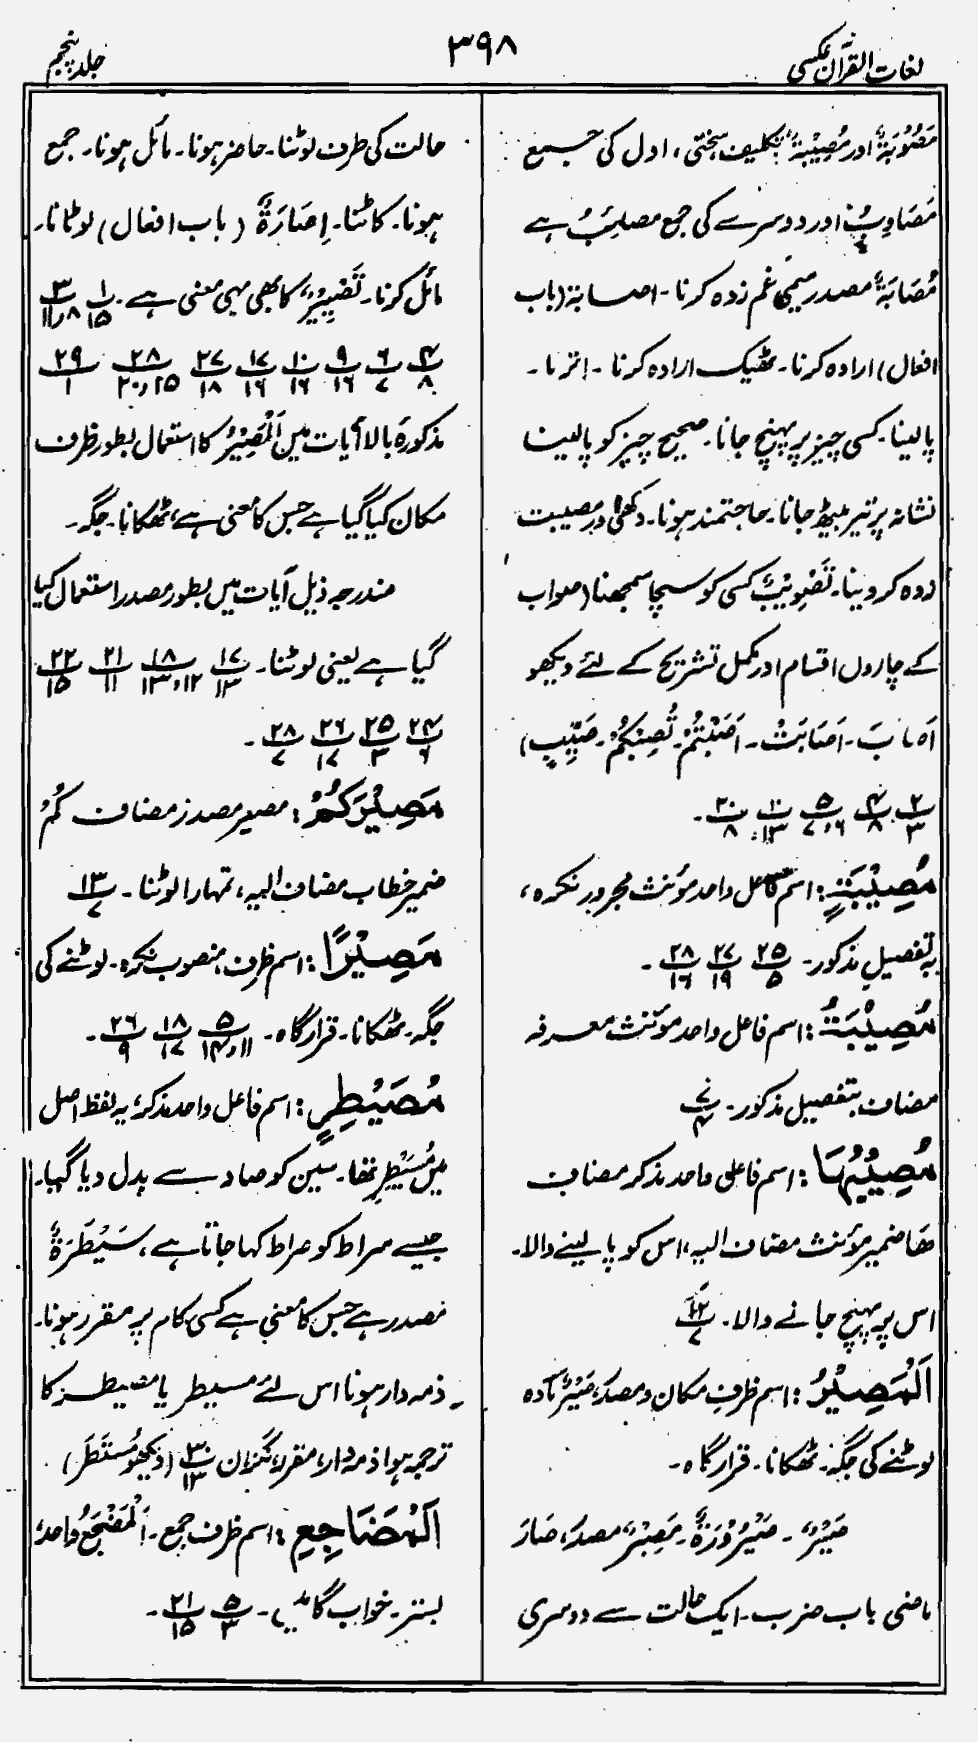 لغات القرآن عکسی
۳۹۸
جلد پنجم
مَصُوْبَةٌ اور مُصِيْبَةٌ تکلیف، سختی، اول کی جمع
مَصَاوِبُ اور دوسرے کی جمع مصائب ہے
مُصَابَةٌ مصدر میمی غم زدہ کرنا۔ اصابة (باب
افعال) ارادہ کرنا۔ ٹھیک ارادہ کرنا۔ اترنا۔
پالینا۔ کسی چیز پر پہنچ جانا۔ صحیح چیز کو پالینا
نشانہ پر تیر بیٹھ جانا۔ حاجتمند ہونا۔ دکھی اور مصیبت
زدہ کر دینا۔ تَصْوِيْبٌ کسی کو سچا سمجھنا (صواب
کے چاروں اقسام اور مکمل تشریح کے لئے دیکھو
اَصَابَ۔ اَصَابَتْ۔ اَصَبْتُمْ۔ تُصِبْكُمْ۔ صَيِّبٍ)
۲/۳ ۴/۸ ۵/۶،۷ ۱۰/۱۳ ۲۰/۸۔
مُصِيْبَةٍ: اسم فاعل واحد مؤنث مجرور نکرہ،
بہ تفصیل مذکور۔ ۲۵/۵ ۲۷/۱۹ ۲۸/۱۶۔
مُصِيْبَةُ: اسم فاعل واحد مؤنث معرفہ
مضاف بتفصیل مذکور۔ ۷/۴
مُصِيْبُهَا: اسم فاعل واحد مذکر مضاف
ھَا ضمیر مؤنث مضاف الیہ، اس کو پالینے والا۔
اس پر پہنچ جانے والا۔ ۱۲/۷
اَلْمَصِيْرُ: اسم ظرف مکان و مصدر، صَيْرٌ مادہ
لوٹنے کی جگہ۔ ٹھکانا۔ قرار گاہ۔
صَيْرٌ۔ صَيْرُوْرَةٌ۔ مَصِيْرٌ مصدر، صَارَ
ماضی باب ضرب۔ ایک حالت سے دوسری
حالت کی طرف لوٹنا۔ حاضر ہونا۔ مائل ہونا۔ جمع
ہونا۔ کاٹنا۔ اِصَارَةٌ (باب افعال) لوٹانا۔
مائل کرنا۔ تَصْيِيْرٌ کا بھی یہی معنی ہے۔ ۱/۱۵ ۳/۸،۱۱
۴/۸ ۶/۷ ۹/۱۶ ۱۰/۱۶ ۱۷/۱۶ ۲۷/۱۸ ۲۸/۱۵،۲۰ ۲۹/۱
مذکورہ بالا آیات میں اَلْمَصِيْرُ کا استعمال بطور ظرف
مکان کیا گیا ہے جس کا معنی ہے، ٹھکانا۔ جگہ۔
مندرجہ ذیل آیات میں بطور مصدر استعمال کیا
گیا ہے یعنی لوٹنا۔ ۱۷/۱۳ ۱۸/۱۲،۱۳ ۲۱/۱۱ ۲۲/۱۵
۲۴/۶ ۲۵/۳ ۲۶/۱۷ ۲۸/۷۔
مَصِيْرَكُمْ: مصیر مصدر مضاف کُمْ
ضمیر خطاب مضاف الیہ، تمہارا لوٹنا۔ ۱۳/۷
مَصِيْرًا: اسم ظرف، منصوب نکرہ۔ لوٹنے کی
جگہ۔ ٹھکانا۔ قرار گاہ۔ ۵/۱۱،۱۴ ۱۸/۱۷ ۲۶/۹۔
مُصَيْطِرٍ: اسم فاعل واحد مذکر، یہ لفظ اصل
میں مُسَيْطِر تھا۔ سین کو صاد سے بدل دیا گیا۔
جیسے سراط کو صراط کہا جاتا ہے، سَيْطَرَةٌ
مصدر ہے جس کا معنی ہے کسی کام پر مقرر ہونا۔
ذمہ دار ہونا اس لئے مسیطر یا مصیطر کا
ترجمہ ہوا ذمہ دار، مقرر، نگران ۳۰/۱۳ (دیکھو مُسْتَطَر)
اَلْمَضَاجِعِ: اسم ظرف جمع۔ اَلْمَضْجَعُ واحد،
بستر۔ خواب گاہیں۔ ۵/۳ ۲۱/۱۵۔